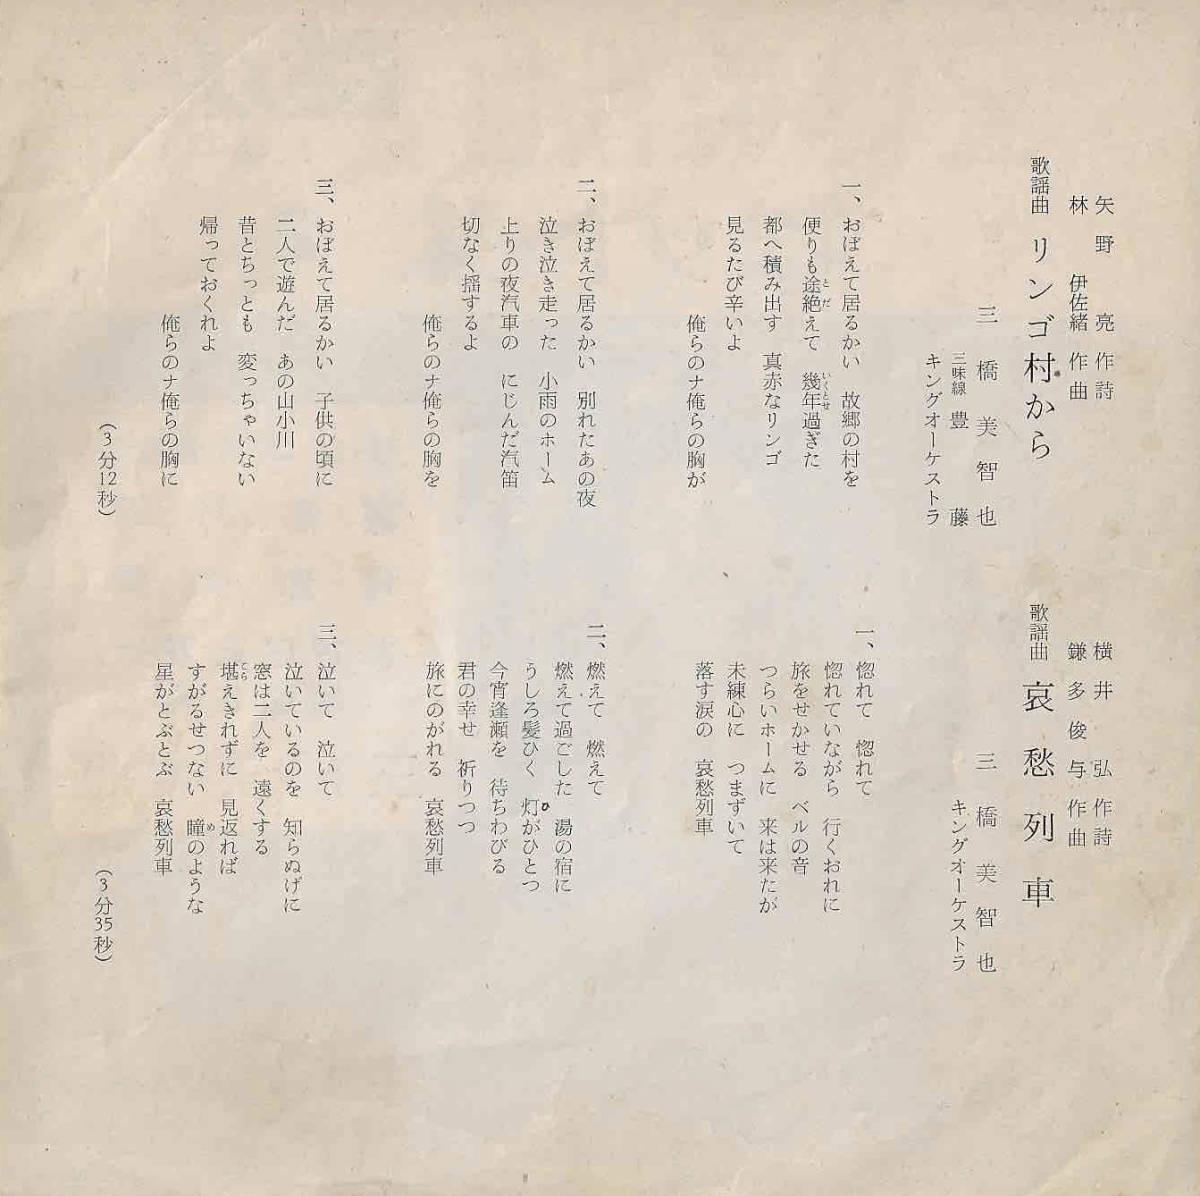 矢野 亮 作詩
林 伊佐緒 作曲
歌謡曲 リンゴ村から
三橋美智也
三味線 豊藤
キングオーケストラ
一、おぼえて居るかい 故郷の村を
便りも途絶えて 幾年過ぎた
とだ
いくとせ
都へ積み出す 真赤なリンゴ
見るたび辛いよ
俺らのナ俺らの胸が
二、おぼえて居るかい 別れたあの夜
泣き泣き走った 小雨のホーム
上りの夜汽車の にじんだ汽笛
切なく揺するよ
俺らのナ俺らの胸を
三、おぼえて居るかい 子供の頃に
二人で遊んだ あの山小川
昔とちっとも 変っちゃいない
帰っておくれよ
俺らのナ俺らの胸に
(3分12秒)
横井 弘 作詩
鎌多俊与 作曲
歌謡曲 哀愁列車
三橋美智也
キングオーケストラ
一、惚れて 惚れて
惚れていながら 行くおれに
旅をせかせる ベルの音
つらいホームに 来は来たが
未練心に つまずいて
落す涙の 哀愁列車
二、燃えて 燃えて
燃えて過ごした 湯の宿に
うしろ髪ひく 灯がひとつ
ひ
今宵逢瀬を 待ちわびる
君の幸せ 祈りつつ
旅にのがれる 哀愁列車
三、泣いて 泣いて
泣いているのを 知らぬげに
窓は二人を 遠くする
堪えきれずに 見返れば
こら
すがるせつない 瞳のような
め
星がとぶとぶ 哀愁列車
(3分35秒)